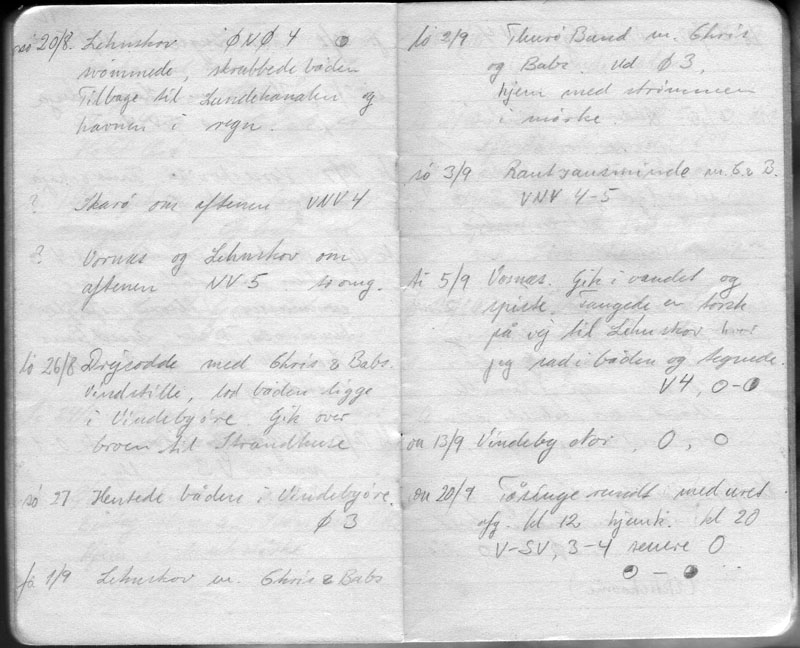 sø 20/8. Lehnskov i ØNØ 4
svømmede, skrabbede båden
Tilbage til Lundekanalen og
havnen i regn.
? Skarø om aftenen VNV 4
? Vornæs og Lehnskov om
aftenen NV 5 to omg.
lø 26/8 Drejeodde med Chris & Babs.
Vindstille, lod båden ligge
i Vindebyøre. Gik over
broen til Strandhuse
sø 27 Hentede båden i Vindebyøre.
Ø 3
fr 1/9 Lehnskov m. Chris & Babs
lø 2/9 Thurø Bund m. Chris
og Babs. Ud Ø 3,
hjem med strømmen
i mørke.
sø 3/9 Rantzausminde m. C & B.
VNV 4-5
ti 5/9 Vornæs. Gik i vandet og
spiste. Fangede en torsk
på vej til Lehnskov hvor
jeg sad i båden og tegnede.
V4, 0-
on 13/9 Vindeby Nor, 0, 0
on 20/9 Tåsinge rundt med uret
afg. kl 12 hjemk. kl 20
V-SV, 3-4 senere 0